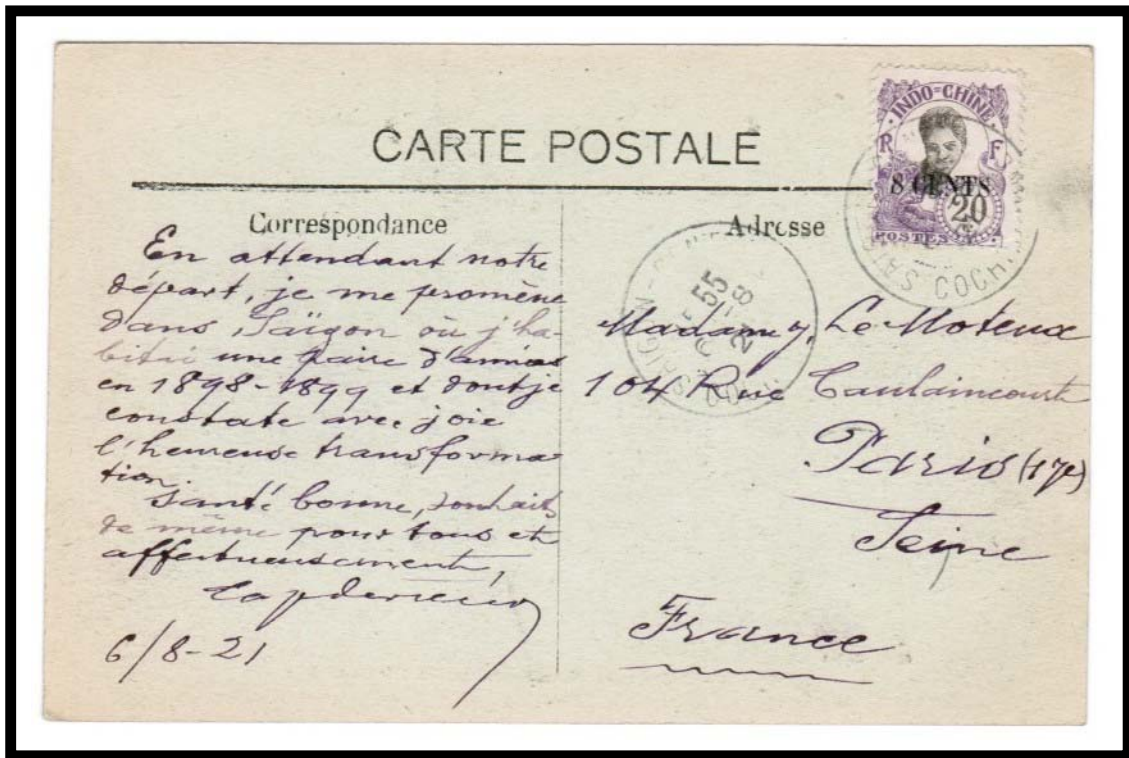 CARTE POSTALE
Correspondance
En attendant notre
départ, je me promène
dans Saïgon où j'ha-
bitai une paire d'années
en 1898-1899 et dont je
constate avec joie
l'heureuse transforma
tion.
Santé bonne, souhaits
de même pour tous et
affectueusement,
6/8-21
INDO-CHINE
R F
8 CENTS
20
POSTES
COCH
Adresse
SAIGON
55
21
Madame Le Moteux
104 Rue Caulaincourt
Paris (17e)
Seine
France